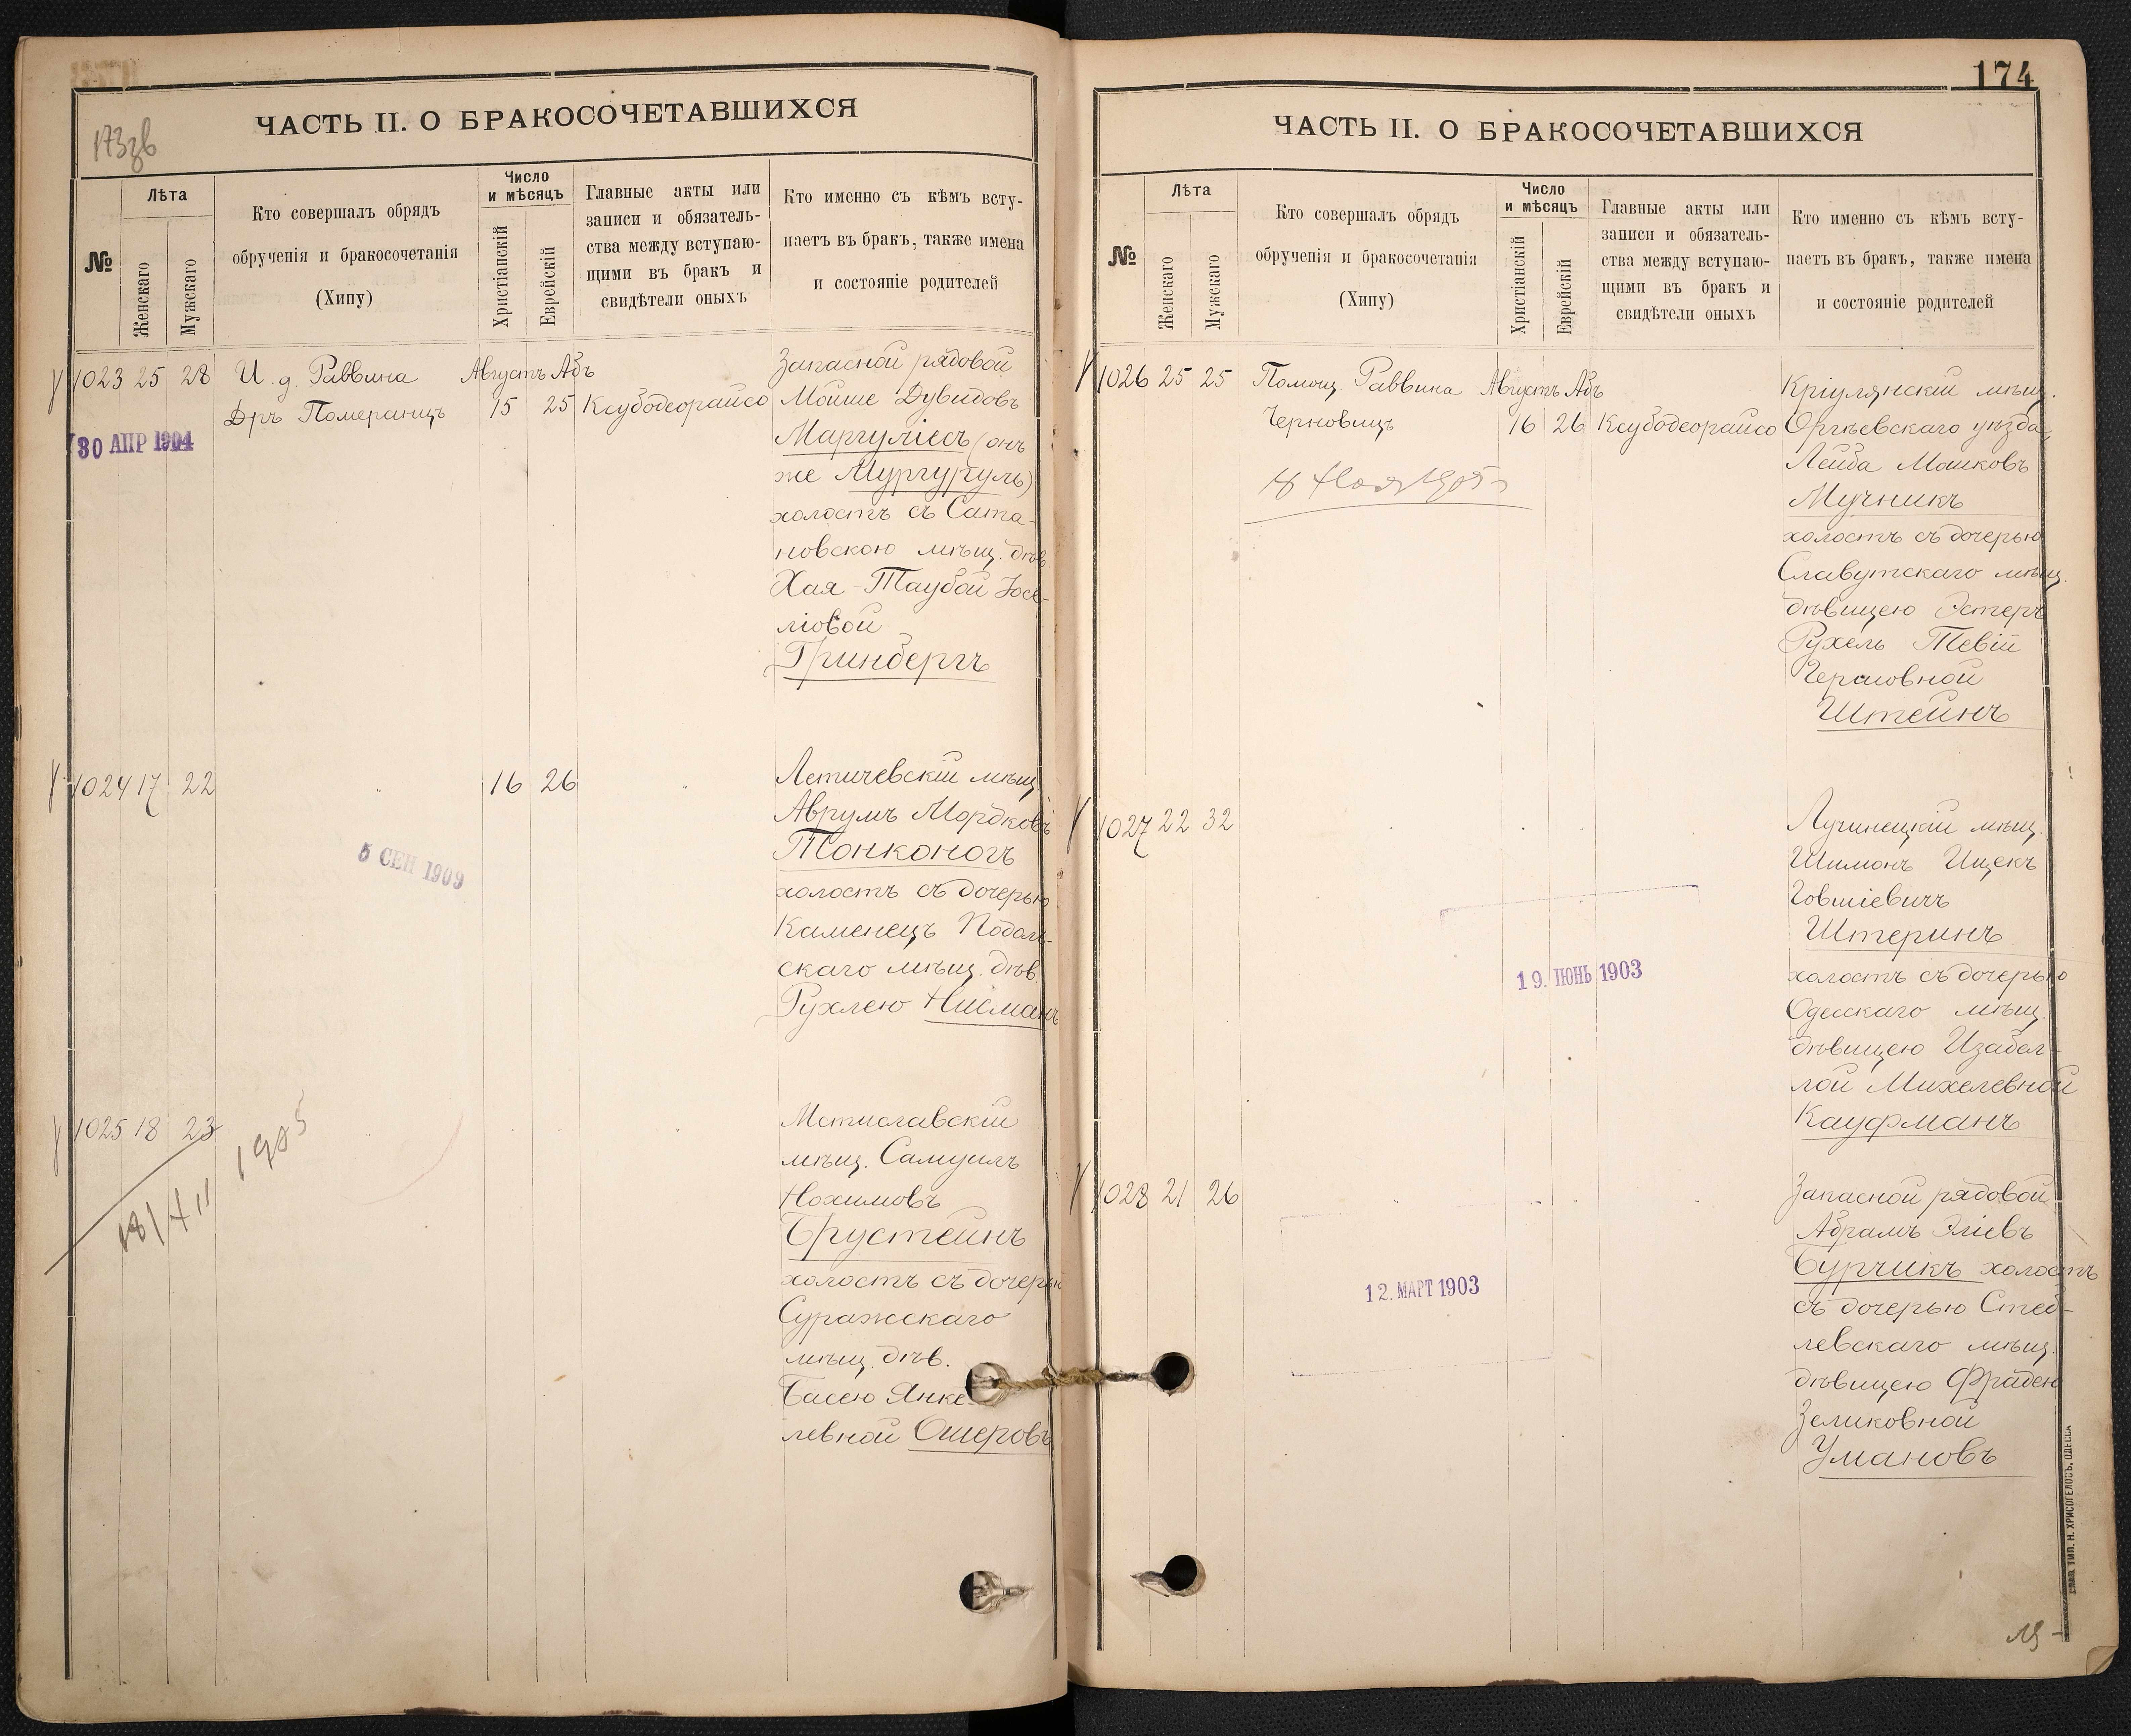 173зв
ЧАСТЬ II. О БРАКОСОЧЕТАВШИХСЯ
№
Лѣта
Женскаго
Мужскаго
Кто совершалъ обрядъ
обрученія и бракосочетанія
(Хипу)
Число
и мѣсяцъ
Христіанскій
Еврейскій
Главные акты или
записи и обязатель-
ства между вступаю-
щими въ бракъ и
свидѣтели оныхъ
Кто именно съ кѣмъ всту-
паетъ въ бракъ, также имена
и состояніе родителей
1023 25 28 И. д. Раввина Августъ Абъ
Дръ Померанцъ 15 25 Ксубодеорайсо
30 АПР 1904
Запасной рядовой
Мойше Дувидовъ
Маргуліесъ (онъ
же Мургуруль)
холостъ съ Сата-
новскою мѣщ. дѣв.
Хая-Таубой Іосе-
ліовой
Гринбергъ
1024 17 22 " 16 26 "
5 СЕН 1909
Летичевскій мѣщ
Аврумъ Мордковъ
Тонконогъ
холостъ съ дочерью
Каменецъ Подоль-
скаго мѣщ. дѣв.
Рухлею Нисманъ
1025 18 23 " "
18/XII 1905
Мстиславскій
мѣщ. Самуилъ
Нохимовъ
Брустейнъ
холостъ съ дочерью
Суражскаго
мѣщ. дѣв.
Басею Янке-
левной Ошеровъ
174
ЧАСТЬ II. О БРАКОСОЧЕТАВШИХСЯ
№
Лѣта
Женскаго
Мужскаго
Кто совершалъ обрядъ
обрученія и бракосочетанія
(Хипу)
Число
и мѣсяцъ
Христіанскій
Еврейскій
Главные акты или
записи и обязатель-
ства между вступаю-
щими въ бракъ и
свидѣтели оныхъ
Кто именно съ кѣмъ всту-
паетъ въ бракъ, также имена
и состояніе родителей
1026 25 25 Помощ. Раввина Августъ Абъ
Черновицъ 16 26 Ксубодеорайсо
1905
Кріулянскій мѣщ.
Оргѣевскаго уѣзда,
Лейба Мошковъ
Мучникъ
холостъ съ дочерью
Славутскаго мѣщ.
дѣвицею Эстеръ
Рухель Тевій
Гершовной
Штейнъ
1027 22 32
19. ІЮНЬ 1903
Лучинецкій мѣщ.
Шимонъ Ицекъ
Говшіевичъ
Штеринъ
холостъ съ дочерью
Одесскаго мѣщ.
дѣвицею Изабел-
лой Михелевной
Кауфманъ
1028 21 26 " " "
12. МАРТ 1903
Запасной рядовой
Абрамъ Эліевъ
Бурчикъ холостъ
съ дочерью Стеб-
левскаго мѣщ.
дѣвицею Фрайдею
Зеликовной
Умановъ
ТИП. Н. ХРИСОГЕЛОСЪ, ОДЕССА